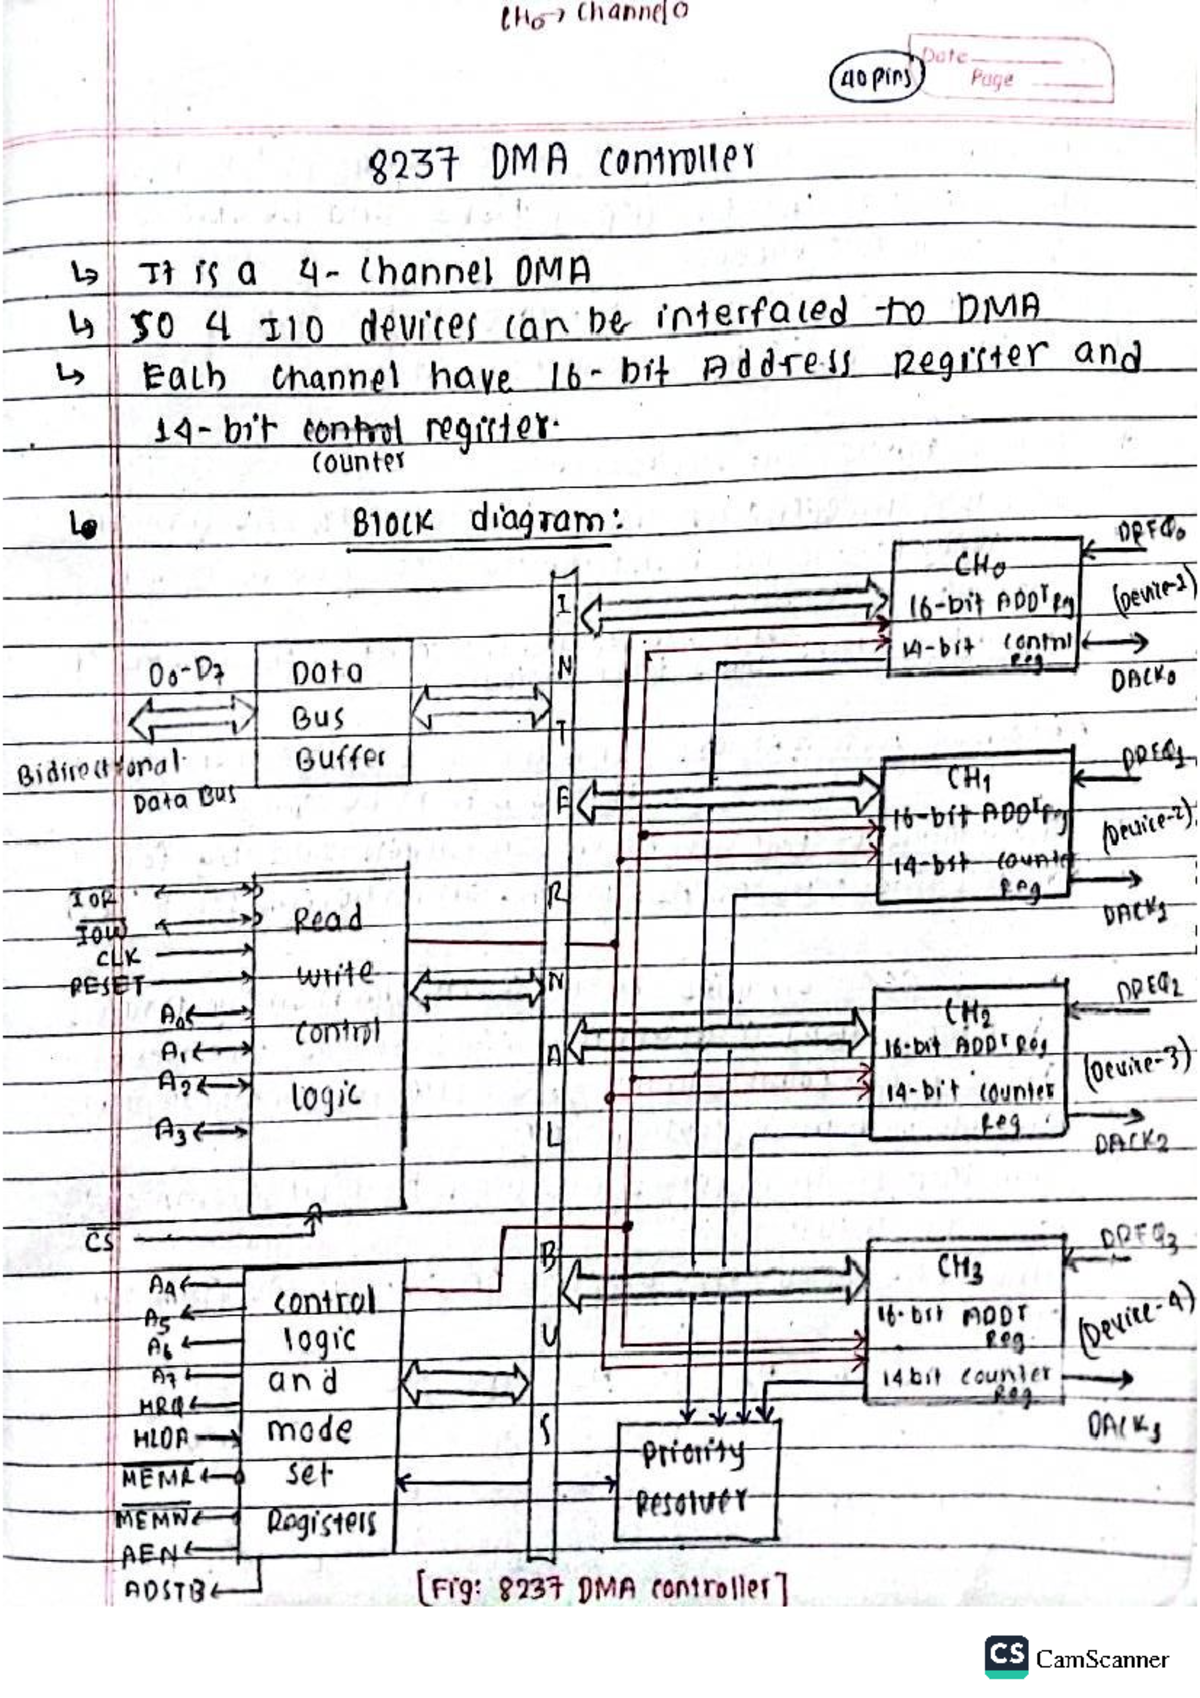 CH₀→ Channel 0
40 pins
Date
Page
8237 DMA controller
↳ It is a 4-channel DMA
↳ so 4 I/O devices can be interfaced to DMA
↳ Each channel have 16-bit Address Register and
14-bit control register.
counter
↳ Block diagram:
INTERNAL BUS
D₀-D₇
Bidirectional
Data Bus
Data
Bus
Buffer
CH₀
16-bit ADDr Reg
14-bit control
Reg
DREQ₀
(Device-1)
DACK₀
CH₁
16-bit ADDr Reg
14-bit counte
Reg
DREQ₁
(Device-2)
DACK₁
IOR
IOW
CLK
RESET
A₀
A₁
A₂
A₃
CS
Read
write
control
logic
CH₂
16-bit ADDr Reg
14-bit counter
Reg
DREQ₂
(Device-3)
DACK₂
A₄
A₅
A₆
A₇
HRQ
HLDA
MEMR
MEMW
AEN
ADSTB
control
logic
and
mode
set
Registers
CH₃
16-bit ADDr
Reg
14bit counter
Reg
DREQ₃
(Device-4)
DACK₃
Priority
Resolver
[Fig: 8237 DMA controller]
CS CamScanner